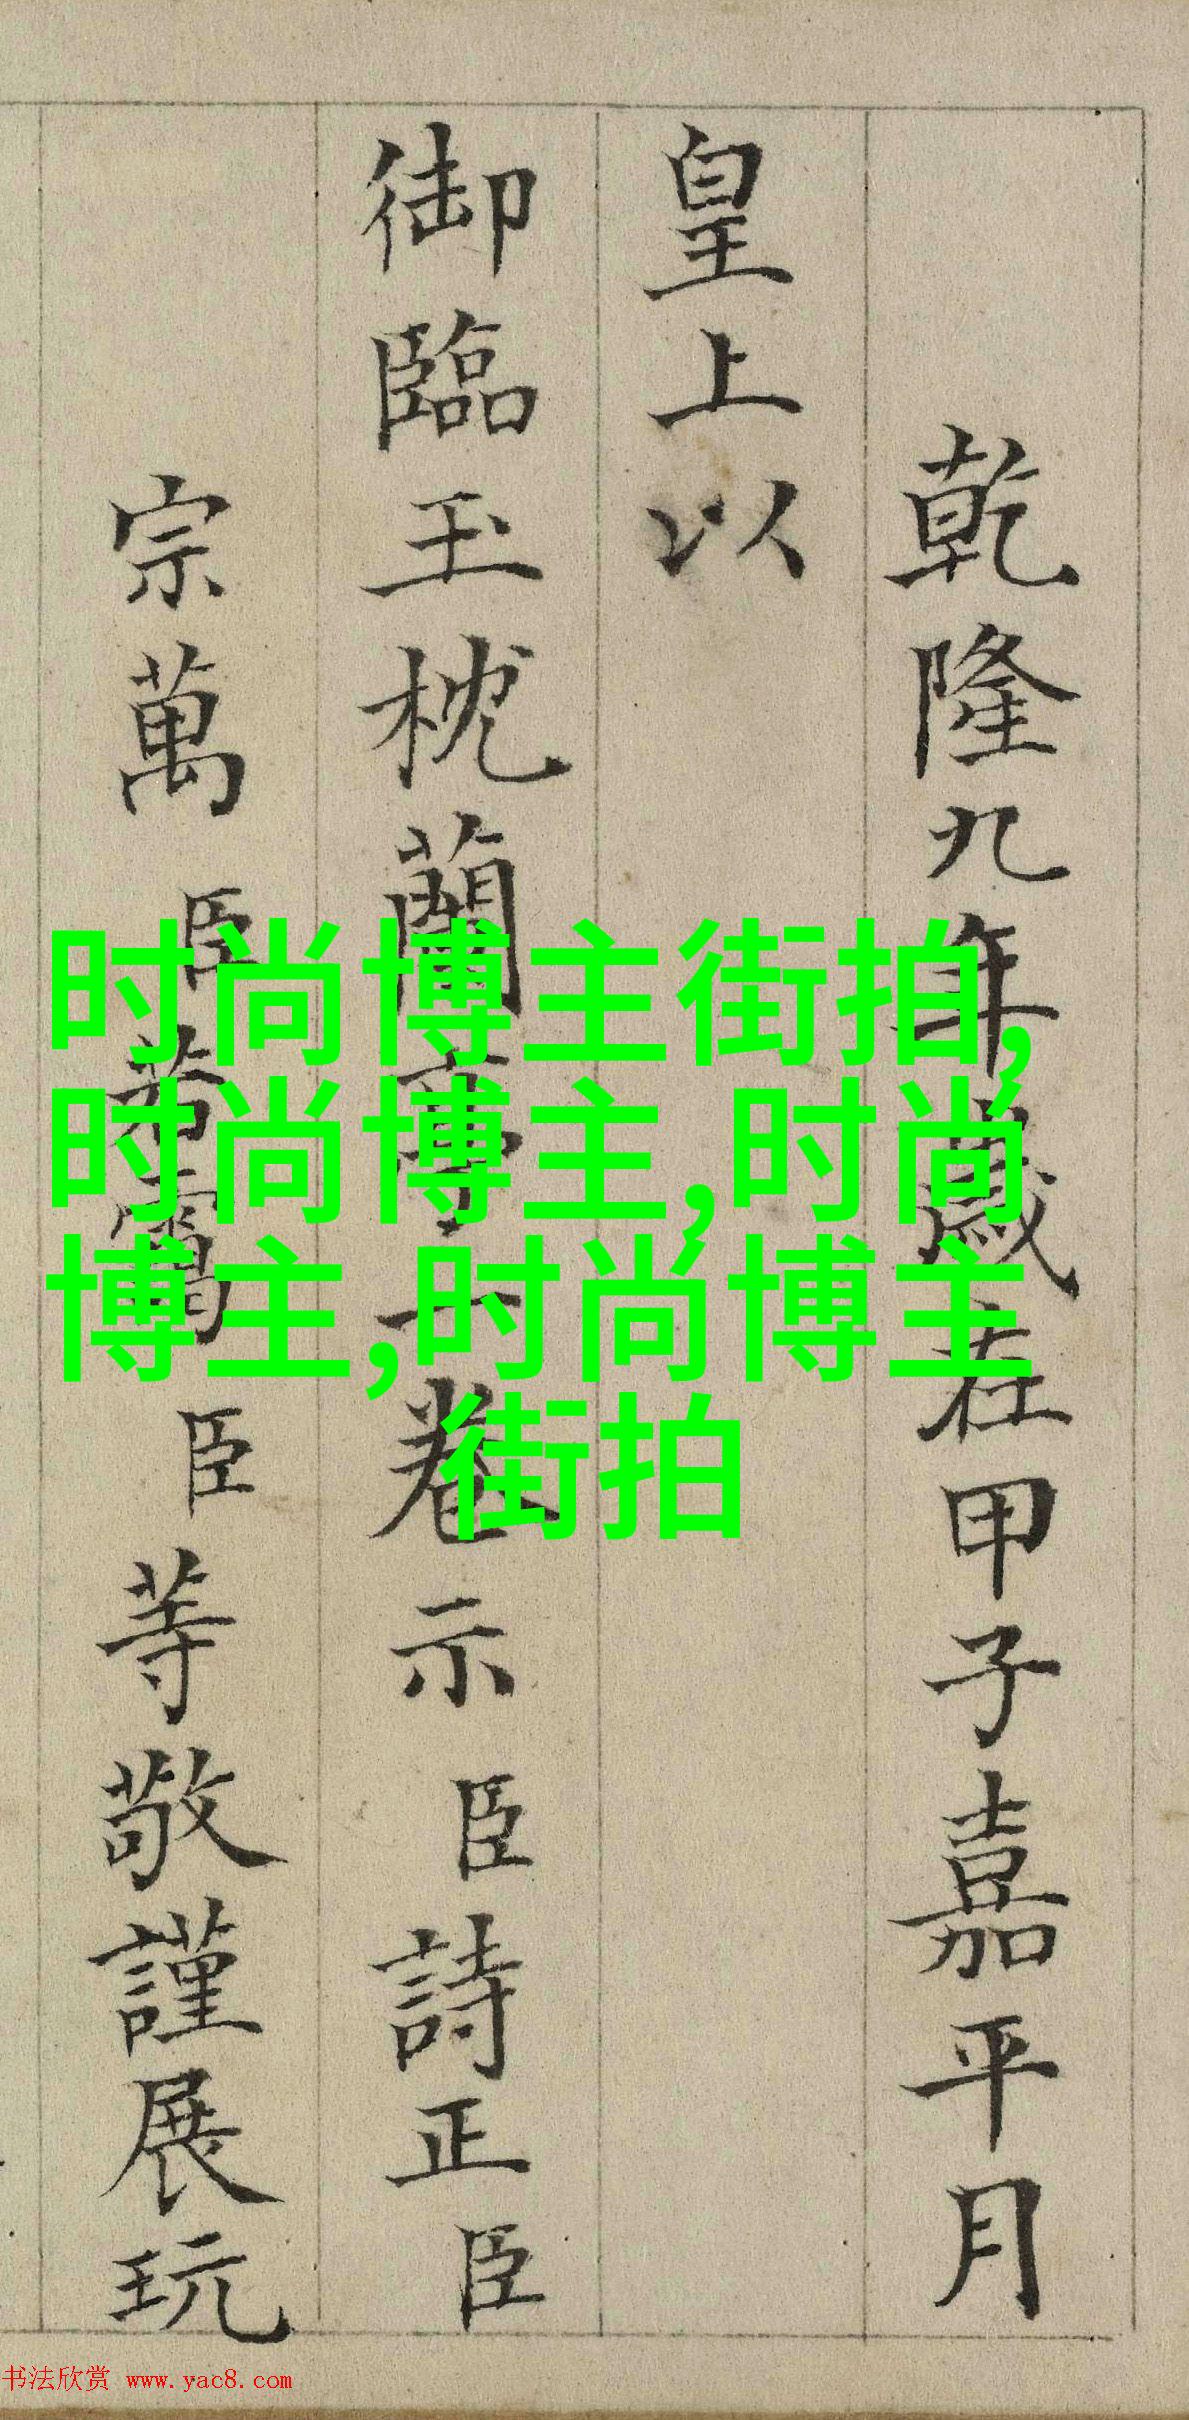 乾隆九年歲在甲子嘉平月
皇上以
御臨玉枕蘭亭一卷示臣詩正臣
宗萬臣若靄臣等敬謹展玩
时尚博主街拍,
时尚博主,时尚
博主,时尚博主
街拍
书法欣赏 www.yac8.com